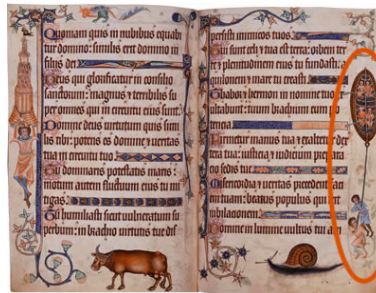 Quoniam quis in nubibus equabi
tur domino: similis erit domino in
filijs dei
Deus qui glorificatur in consilio
sanctorum: magnus et terribilis su
omnes qui in circuitu eius sunt
Domine deus virtutum quis simi
lis tibi: potens es domine et veritas
tua in circuitu tuo
Tu dominaris potestatis maris:
motum autem fluctuum eius tu mi
tigas
Tu humiliasti sicut vulneratum su
perbum: in brachio virtutis tue dis
persisti inimicos tuos
Tui sunt celi et tua est terra: orbem ter
re et plenitudinem eius tu fundasti:
aquilonem et mare tu creasti
Thabor et hermon in nomine tuo
exultabunt: tuum brachium cum po
tentia
manus tua et exaltetur dex
tera tua: iusticia et iudicium prepara
tio sedis tue
Misericordia et veritas precedent faci
em tuam: beatus populus qui scit
iubilationem
Domine in lumine vultus tui am